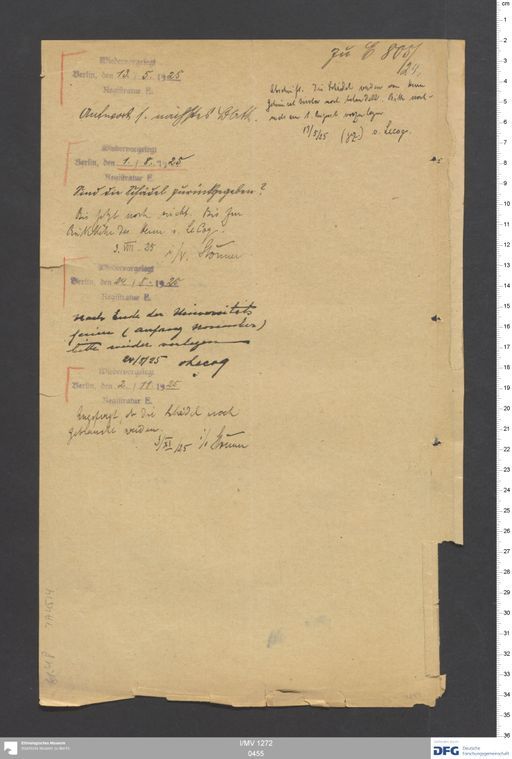 zu E 805/
24.
Wiedervorgelegt
Berlin, den 13. / 5. 1925
Registratur E.
Antwort s. nächstes Blatt.
Abschrift. Die Schädel werden von Herrn
Geheimrat noch behandelt. Bitte noch-
mals am 1. August vorzulegen
13/5/25 (gz.) v. Lecoq.
Wiedervorgelegt
Berlin, den 1. / 8. 1925
Registratur E.
Sind die Schädel zurückgegeben?
Bis jetzt noch nicht. Bis zur
Rückkehr des Herrn v. LeCoq.
3. VIII. 25 i/v. Stönner
Wiedervorgelegt
Berlin, den 24 / 8. 1925
Registratur E.
Nach Ende der Universitäts
ferien (Anfang November)
bitte wieder vorlegen
24/8/25 v Lecoq
Wiedervorgelegt
Berlin, den 2. / 11. 1925
Registratur E.
Angefragt, ob die Schädel noch
gebraucht werden.
3/XI 25 i/v Stönner
Ethnologisches Museum
Staatliche Museen zu Berlin
I/MV 1272
0455
DFG Deutsche
Forschungsgemeinschaft